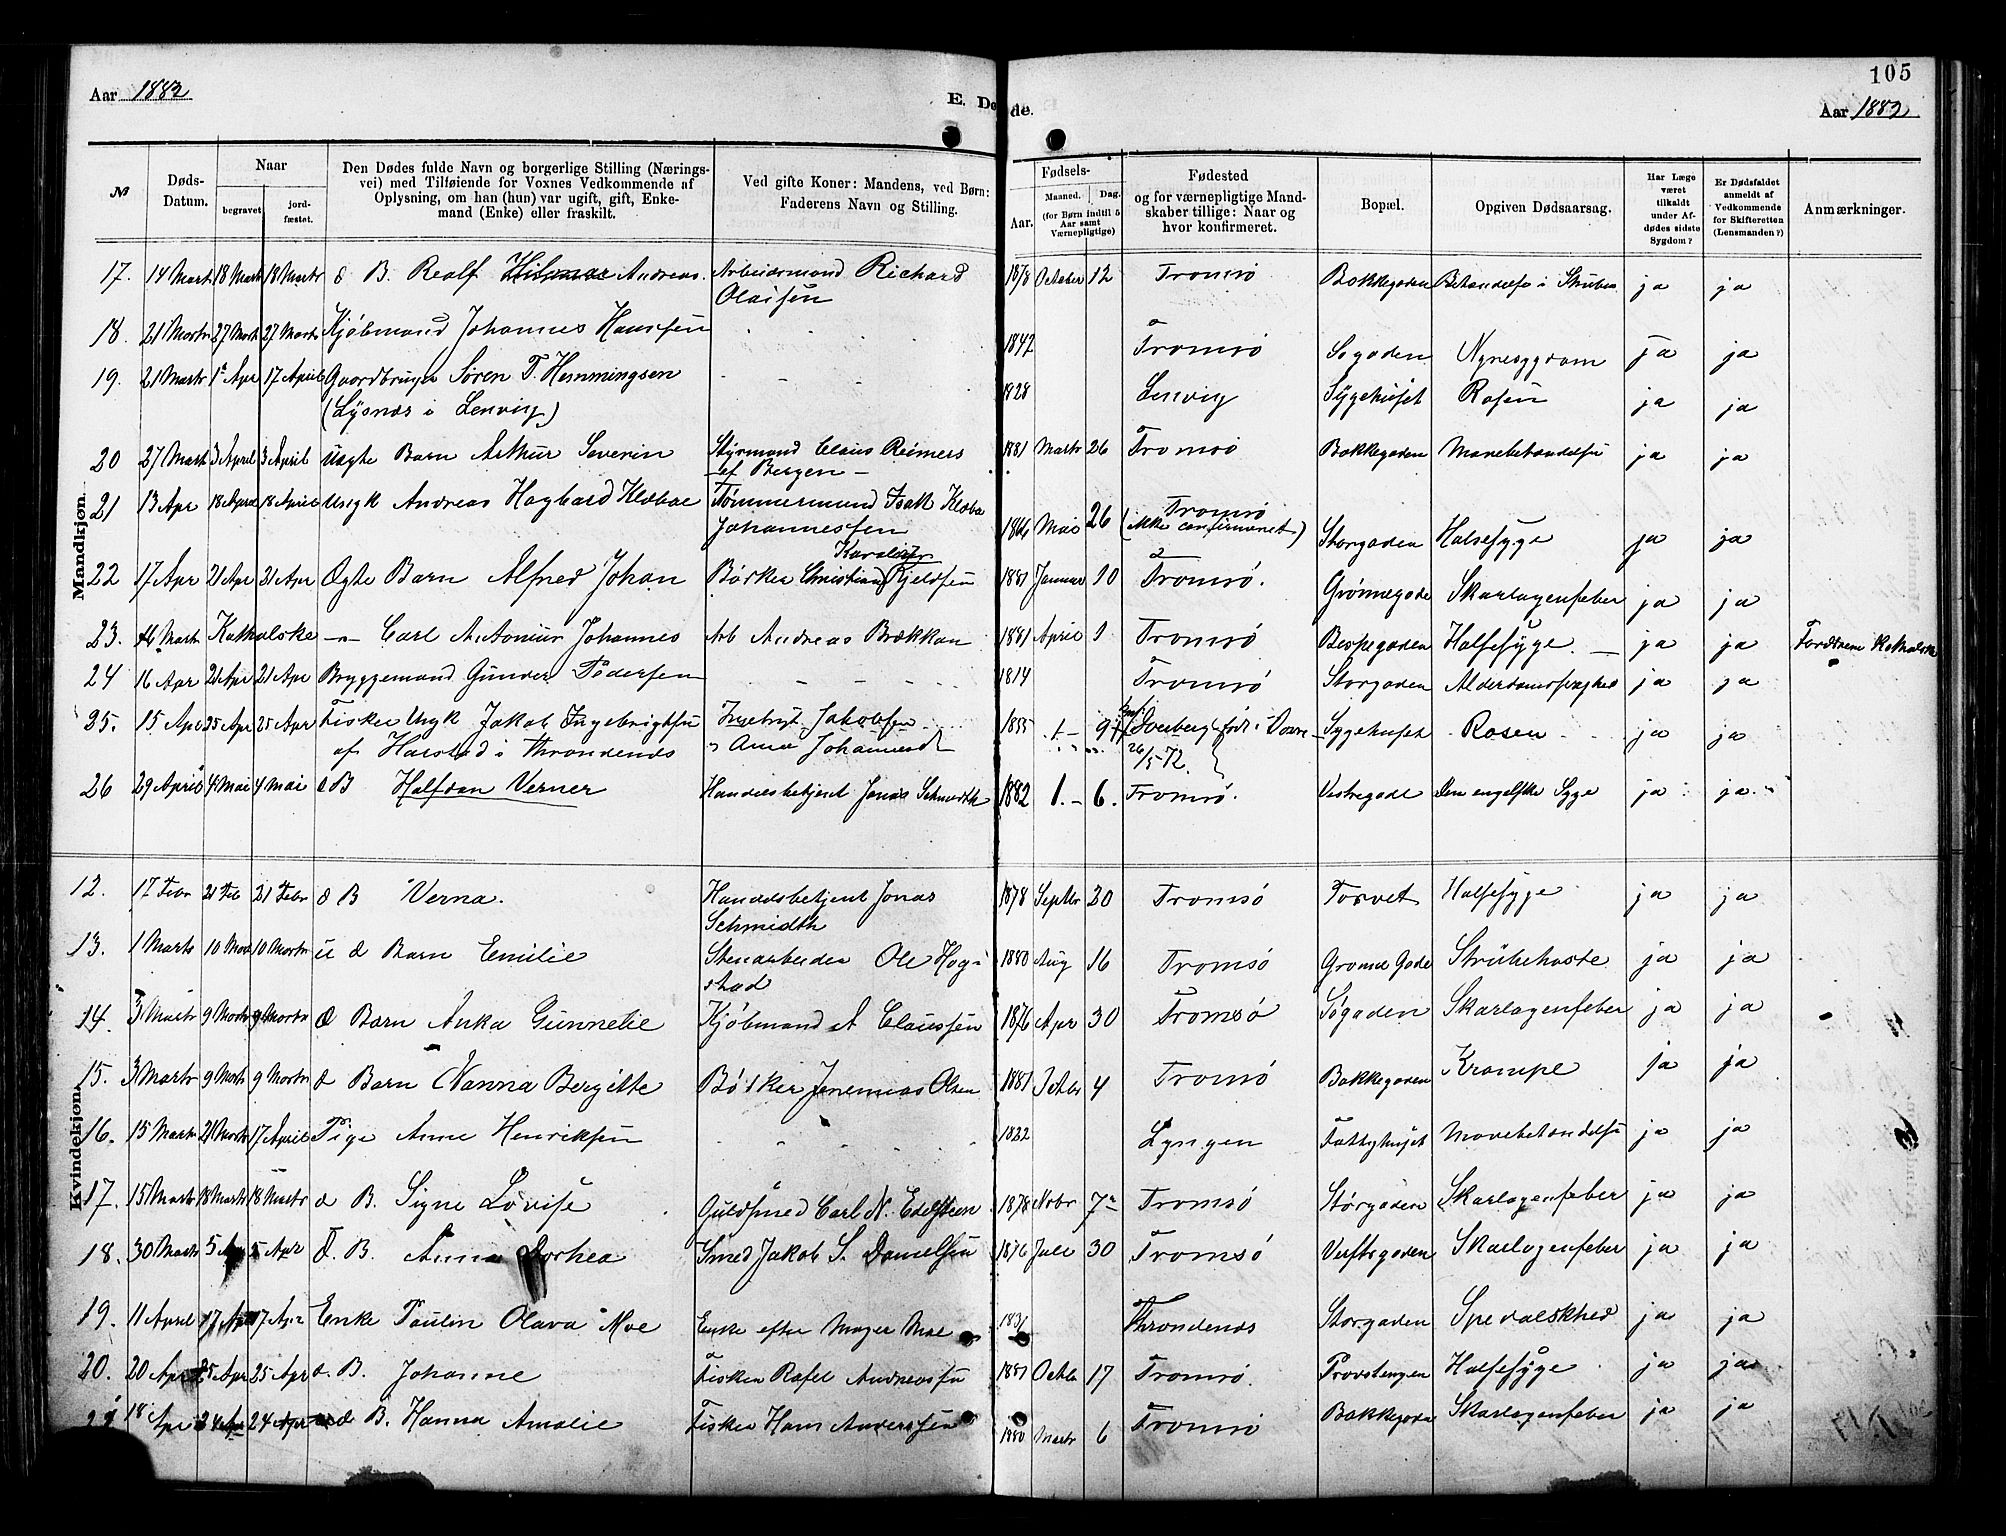 105
Aar 1882
E. Døde.
Aar 1882
№
Døds-Datum.
Naar
begravet
jord-fæstet.
Den Dødes fulde Navn og borgerlige Stilling (Nærings-
vei) med Tilføiende for Voxnes Vedkommende af
Oplysning, om han (hun) var ugift, gift, Enke-
mand (Enke) eller fraskilt.
Ved gifte Koner: Mandens, ved Børn:
Faderens Navn og Stilling.
Fødsels-
Aar.
Maaned.
Dag.
(for Børn indtil 5
Aar samt
Værnepligtige)
Fødested
og for værnepligtige Mand-
skaber tillige: Naar og
hvor konfirmeret.
Bopæl.
Opgiven Dødsaarsag.
Har Læge
været
tilkaldt
under Af-
dødes sidste
Sygdom?
Er Dødsfaldet
anmeldt af
Vedkommende
for Skifteretten
(Lensmanden?)
Anmærkninger.
Mandkjøn.
17. 14 Marts 18 Marts 18 Marts B. Realf Andreas Arbeidsmand Richard 1878 October 12 Tromsø Bakkegaden Betændelse i Struben ja ja
Olaisen
18. 21 Marts 27 Marts 27 Marts Kjøbmand Johannes Hanssen 1842 Tromsø Søgaden Nyresygdom ja ja
19. 21 Marts 1 Apr 17 April Gaardbruger Søren T. Hemmingsen 1828 Lenvig Sygehuset Rosen ja ja
(Lysnes i Lenvig)
20 27 Marts 3 April 3 April uægte Barn Arthur Severin Styrmand Claus Reimers 1881 Marts 26 Tromsø Bakkegaden Mavebetændelse ja ja
af Bergen
21 13 Apr 18 April 18 April Ungk Andreas Hagbard Klæboe Tømmermand Isak Klæbo 1866 Mai 26 Tromsø Storgaden Halsesyge ja ja
Johannessen (ikke confirmeret)
22 17 Apr 21 Apr 21 Apr Ægte Barn Alfred Johan Bødker Christian Kjeldsen 1881 Januar 10 Tromsø. Grønnegade Skarlagenfeber ja ja
23. 16 Marts Katholske Carl Antonius Johannes Arb Andreas Brækkan 1881 April 1 Tromsø Halsesyge ja ja
24 16 Apr 21 Apr 21 Apr Bryggemand Gunder Pedersen 1814 Tromsø Storgaden Alderdomssvaghed ja ja
25. 15 Apr 25 Apr 25 Apr Fisker Ungk Jakob Ingebrigtsen Ingebrigt Jakobsen 1855 Sygehuset Rosen ja ja
af Harstad i Throndenes Anna 26/5 72.
26 29 April 4 Mai 4 Mai B Halfdan Verner Handelsbetjent Jonas Schmidth 1882 1. 6. Tromsø. Vestregade Den engelske Syge ja ja
Kvindekjøn.
12. 17 Febr 21 Feb 21 Febr æ B Verna. Handelsbetjent Jonas 1878 Septbr 20 Tromsø Torvet Halsesyge ja ja
Schmidth
13. 1 Marts 10 Mar 10 Marts u æ Barn Emilie Stenarbeider Ole Hog- 1880 Aug 16 Tromsø Grønne Gade Strubehoste ja ja
stad
14. 3 Marts 9 Marts 9 Marts Æ Barn Anka Gunnelie Kjøbmand A Claussen 1876 Apr 30 Tromsø Søgaden Skarlagenfeber ja ja
15. 3 Marts 9 Marts 9 Marts æ Barn Nanna Bergitte Bødker Jeremias Olsen 1881 Octbr 4 Tromsø Bakkegaden Krampe ja ja
16. 15 Marts 21 Marts 17 April Pige Anne Henriksen 1822 Lyngen Fattighuset Mavebetændelse ja ja
17. 15 Marts 18 Marts 18 Marts æ B. Signe Lovise Guldsmed Carl N. Edelsteen 1878 Novbr 7 Tromsø Storgaden Skarlagenfeber ja ja
18. 30 Marts 5 Apr 5 Apr Æ. B. Anna Dorhea Smed Jakob S. Danielsen 1876 Juli 30 Tromsø Verftsgaden Skarlagenfeber ja ja
19. 11 April 17 Apr 17 Apr Enke Paulin Olava Moe Enke efter Moe 1831 Throndenes Storgaden Spedalskhed ja ja
20. 20 Apr 25 Apr 25 Apr æ. B. Johanne Fisker Rafel Andreassen 1881 Octbr 17 Tromsø. Provstengen Halsesyge ja ja
21 18 Apr 24 Apr 24 Apr æ B. Hanna Amalie Fisker Hans Anderssen 1880 Marts 6 Tromsø Bakkegade Skarlagenfeber ja ja